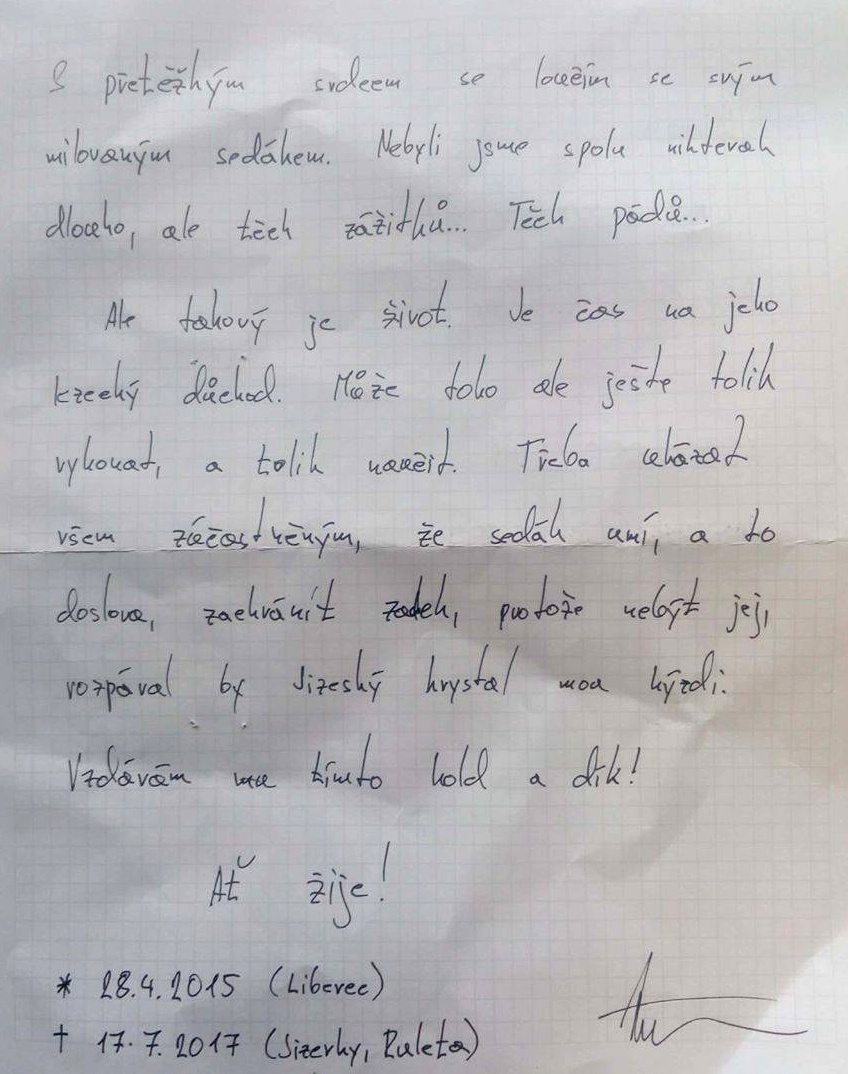 S přetěžkým srdcem se loučím se svým
milovaným sedákem. Nebyli jsme spolu nikterak
dlouho, ale těch zážitků... Těch pádů...
Ale takový je život. Je čas na jeho
krzecký důchod. Může toho ale ještě tolik
vykonat, a tolik naučit. Třeba ukázat
všem zúčastněným, že sedák umí, a to
doslova, zachránit zadek, protože nebýt jej,
rozpáral by Jizerský krystal mou kýzdi.
Vzdávám mu tímto hold a dík!
Ať žije!
* 28.4.2015 (Liberec)
† 17.7.2017 (Jizerky, Ruleta)